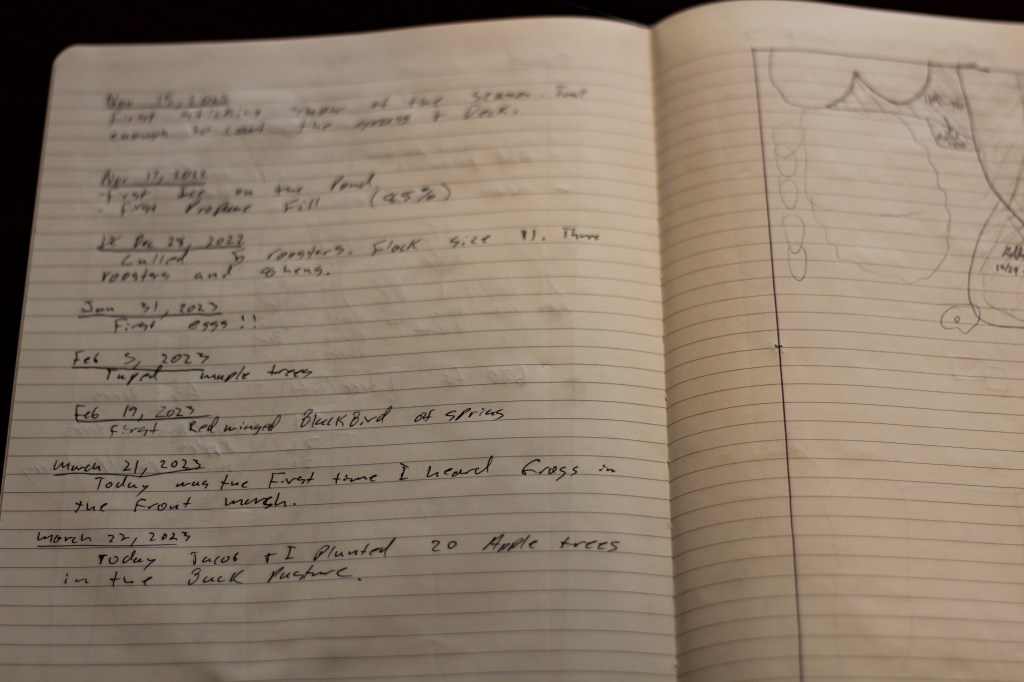 Nov 15, 2022
First sticking snow of the season. Just
enough to coat the grass & Deck.
Nov 19, 2022
First Ice on the Pond,
First Propane Fill (85%)
Dec 28, 2022
Culled 5 roosters. Flock size 11. Three
roosters and 8 hens.
Jan 31, 2023
First eggs!!
Feb 3, 2023
Taped maple trees
Feb 19, 2023
First Red winged BlackBird of spring
March 21, 2023
Today was the First time I heard frogs in
the front marsh.
March 22, 2023
Today Jacob & I Planted 20 Apple trees
in the Back Pasture.